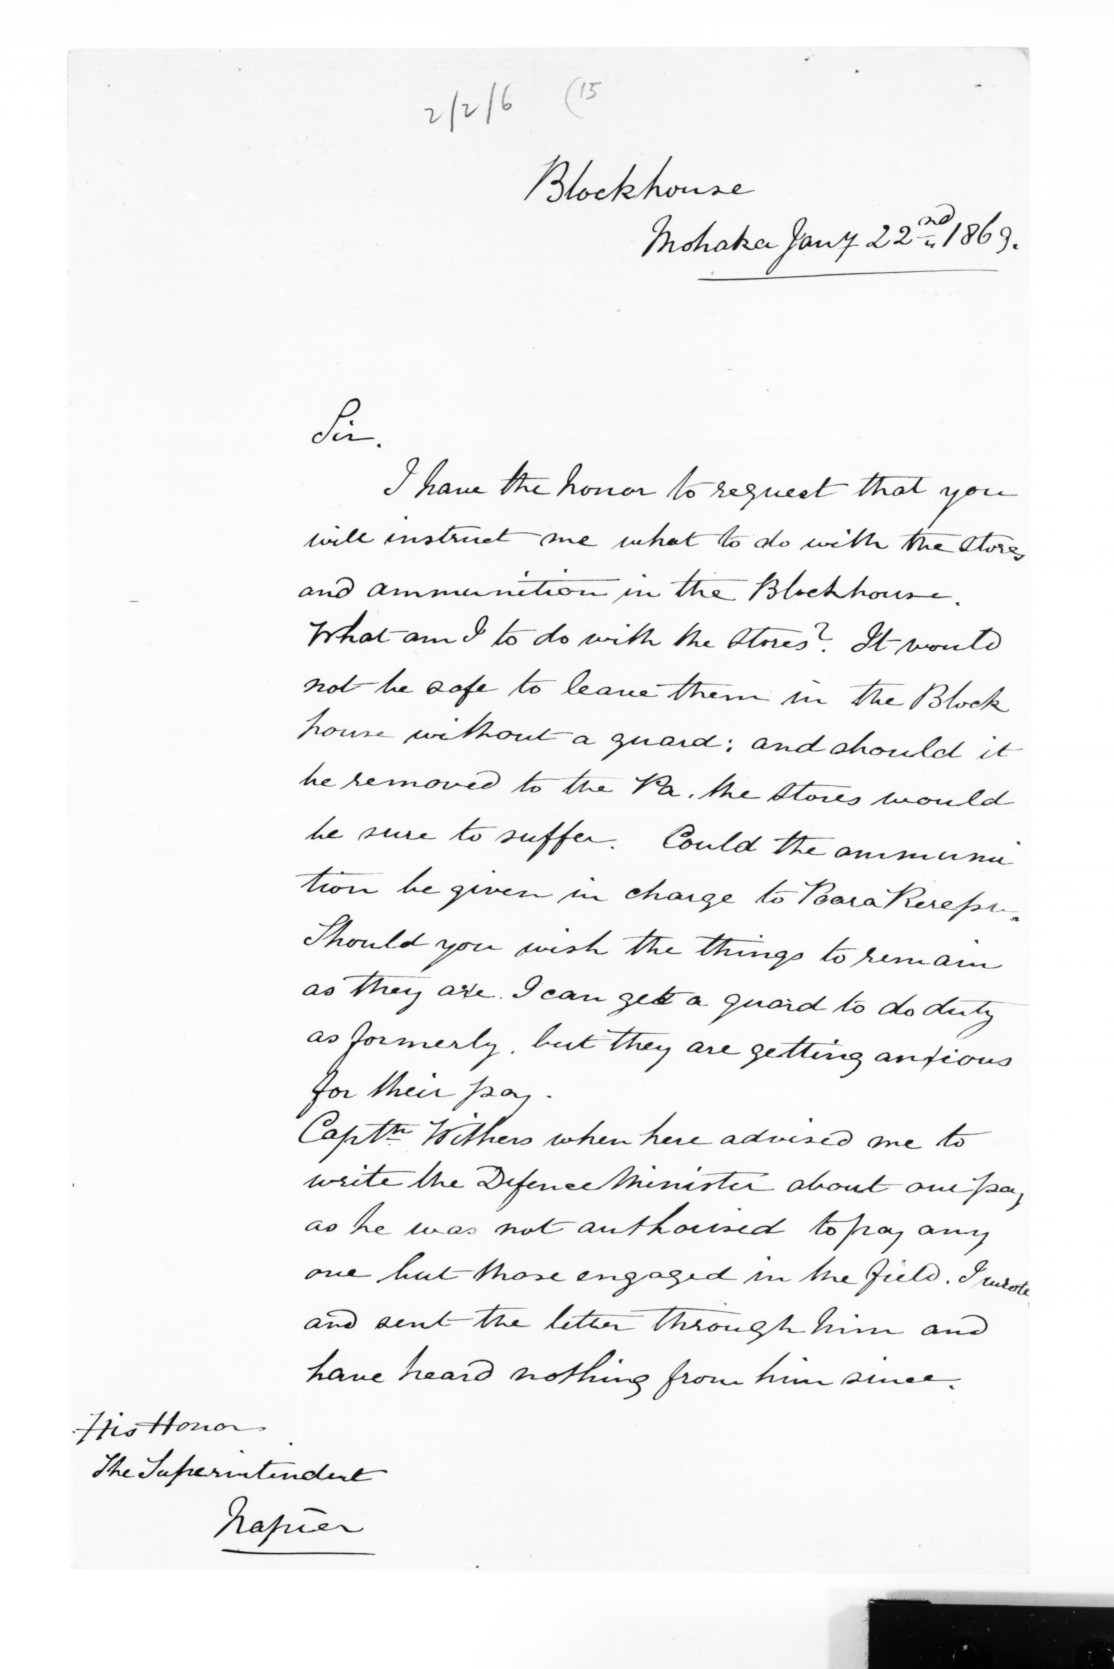 2/2/6 (15
Blockhouse
Mohaka Jany 22nd 1869.
Sir.
I have the honor to request that you
will instruct me what to do with the stores
and ammunition in the Blockhouse.
What am I to do with the stores? It would
not be safe to leave them in the Block
house without a guard; and should it
be removed to the Pa, the stores would
be sure to suffer. Could the ammuni
tion be given in charge to Paora Rerepu.
Should you wish the things to remain
as they are. I can get a guard to do duty
as formerly, but they are getting anxious
for their pay.
Captn Withers when here advised me to
write the Defence Minister about our pay
as he was not authorised to pay any
one but those engaged in the field. I wrote
and sent the letter through him and
have heard nothing from him since.
His Honor
The Superintendent
Napier